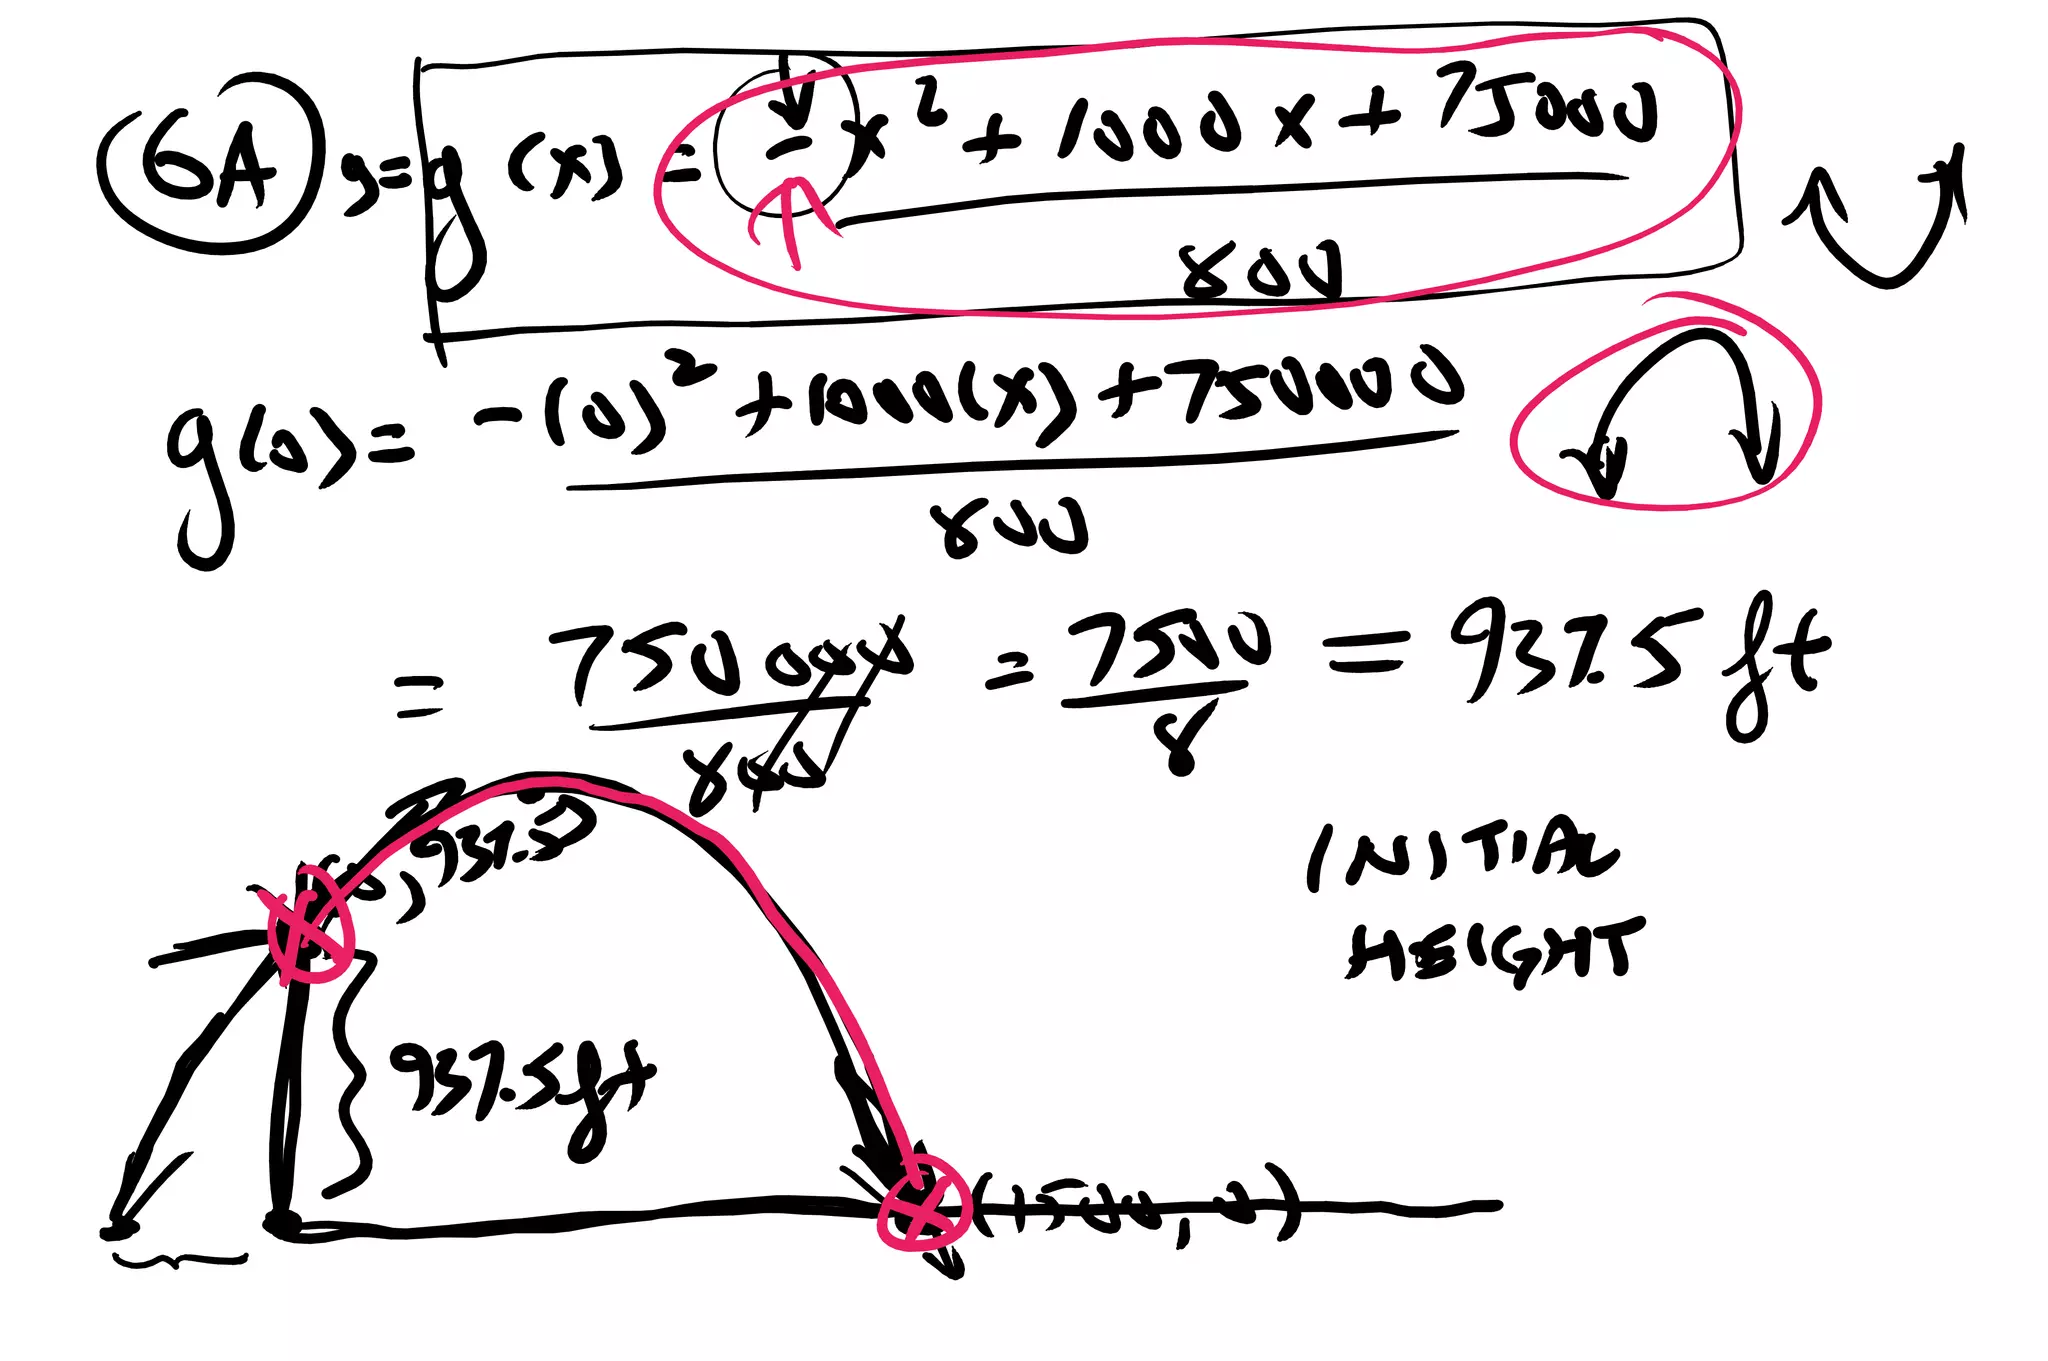 6A y = g(x) = -x² + 1000x + 75000
800
g(0) = -(0)² + 1000(x) + 750000
800
= 750000 / 800 = 7500 / 8 = 937.5 ft
(0, 937.5)
INITIAL
HEIGHT
937.5 ft
(1500, 0)